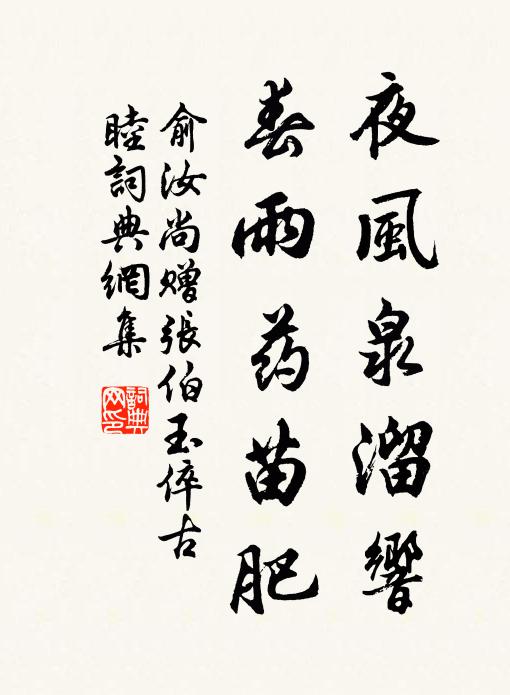 夜風泉溜響
春雨药苗肥
俞汝尚贈張伯玉倅古
睦詞典網集
詞典网印